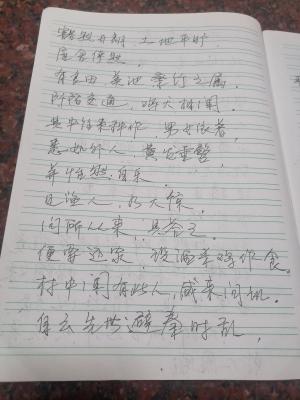 豁然开朗，土地平旷，
屋舍俨然
有良田 美池 桑竹之属，
阡陌交通，鸡犬相闻，
其中往来种作，男女衣着，
悉如外人，黄发垂髫，
并怡然自乐。
见渔人，乃大惊，
问所从来，具答之。
便要还家，设酒杀鸡作食。
村中闻有此人，咸来问讯，
自云先世避秦时乱，